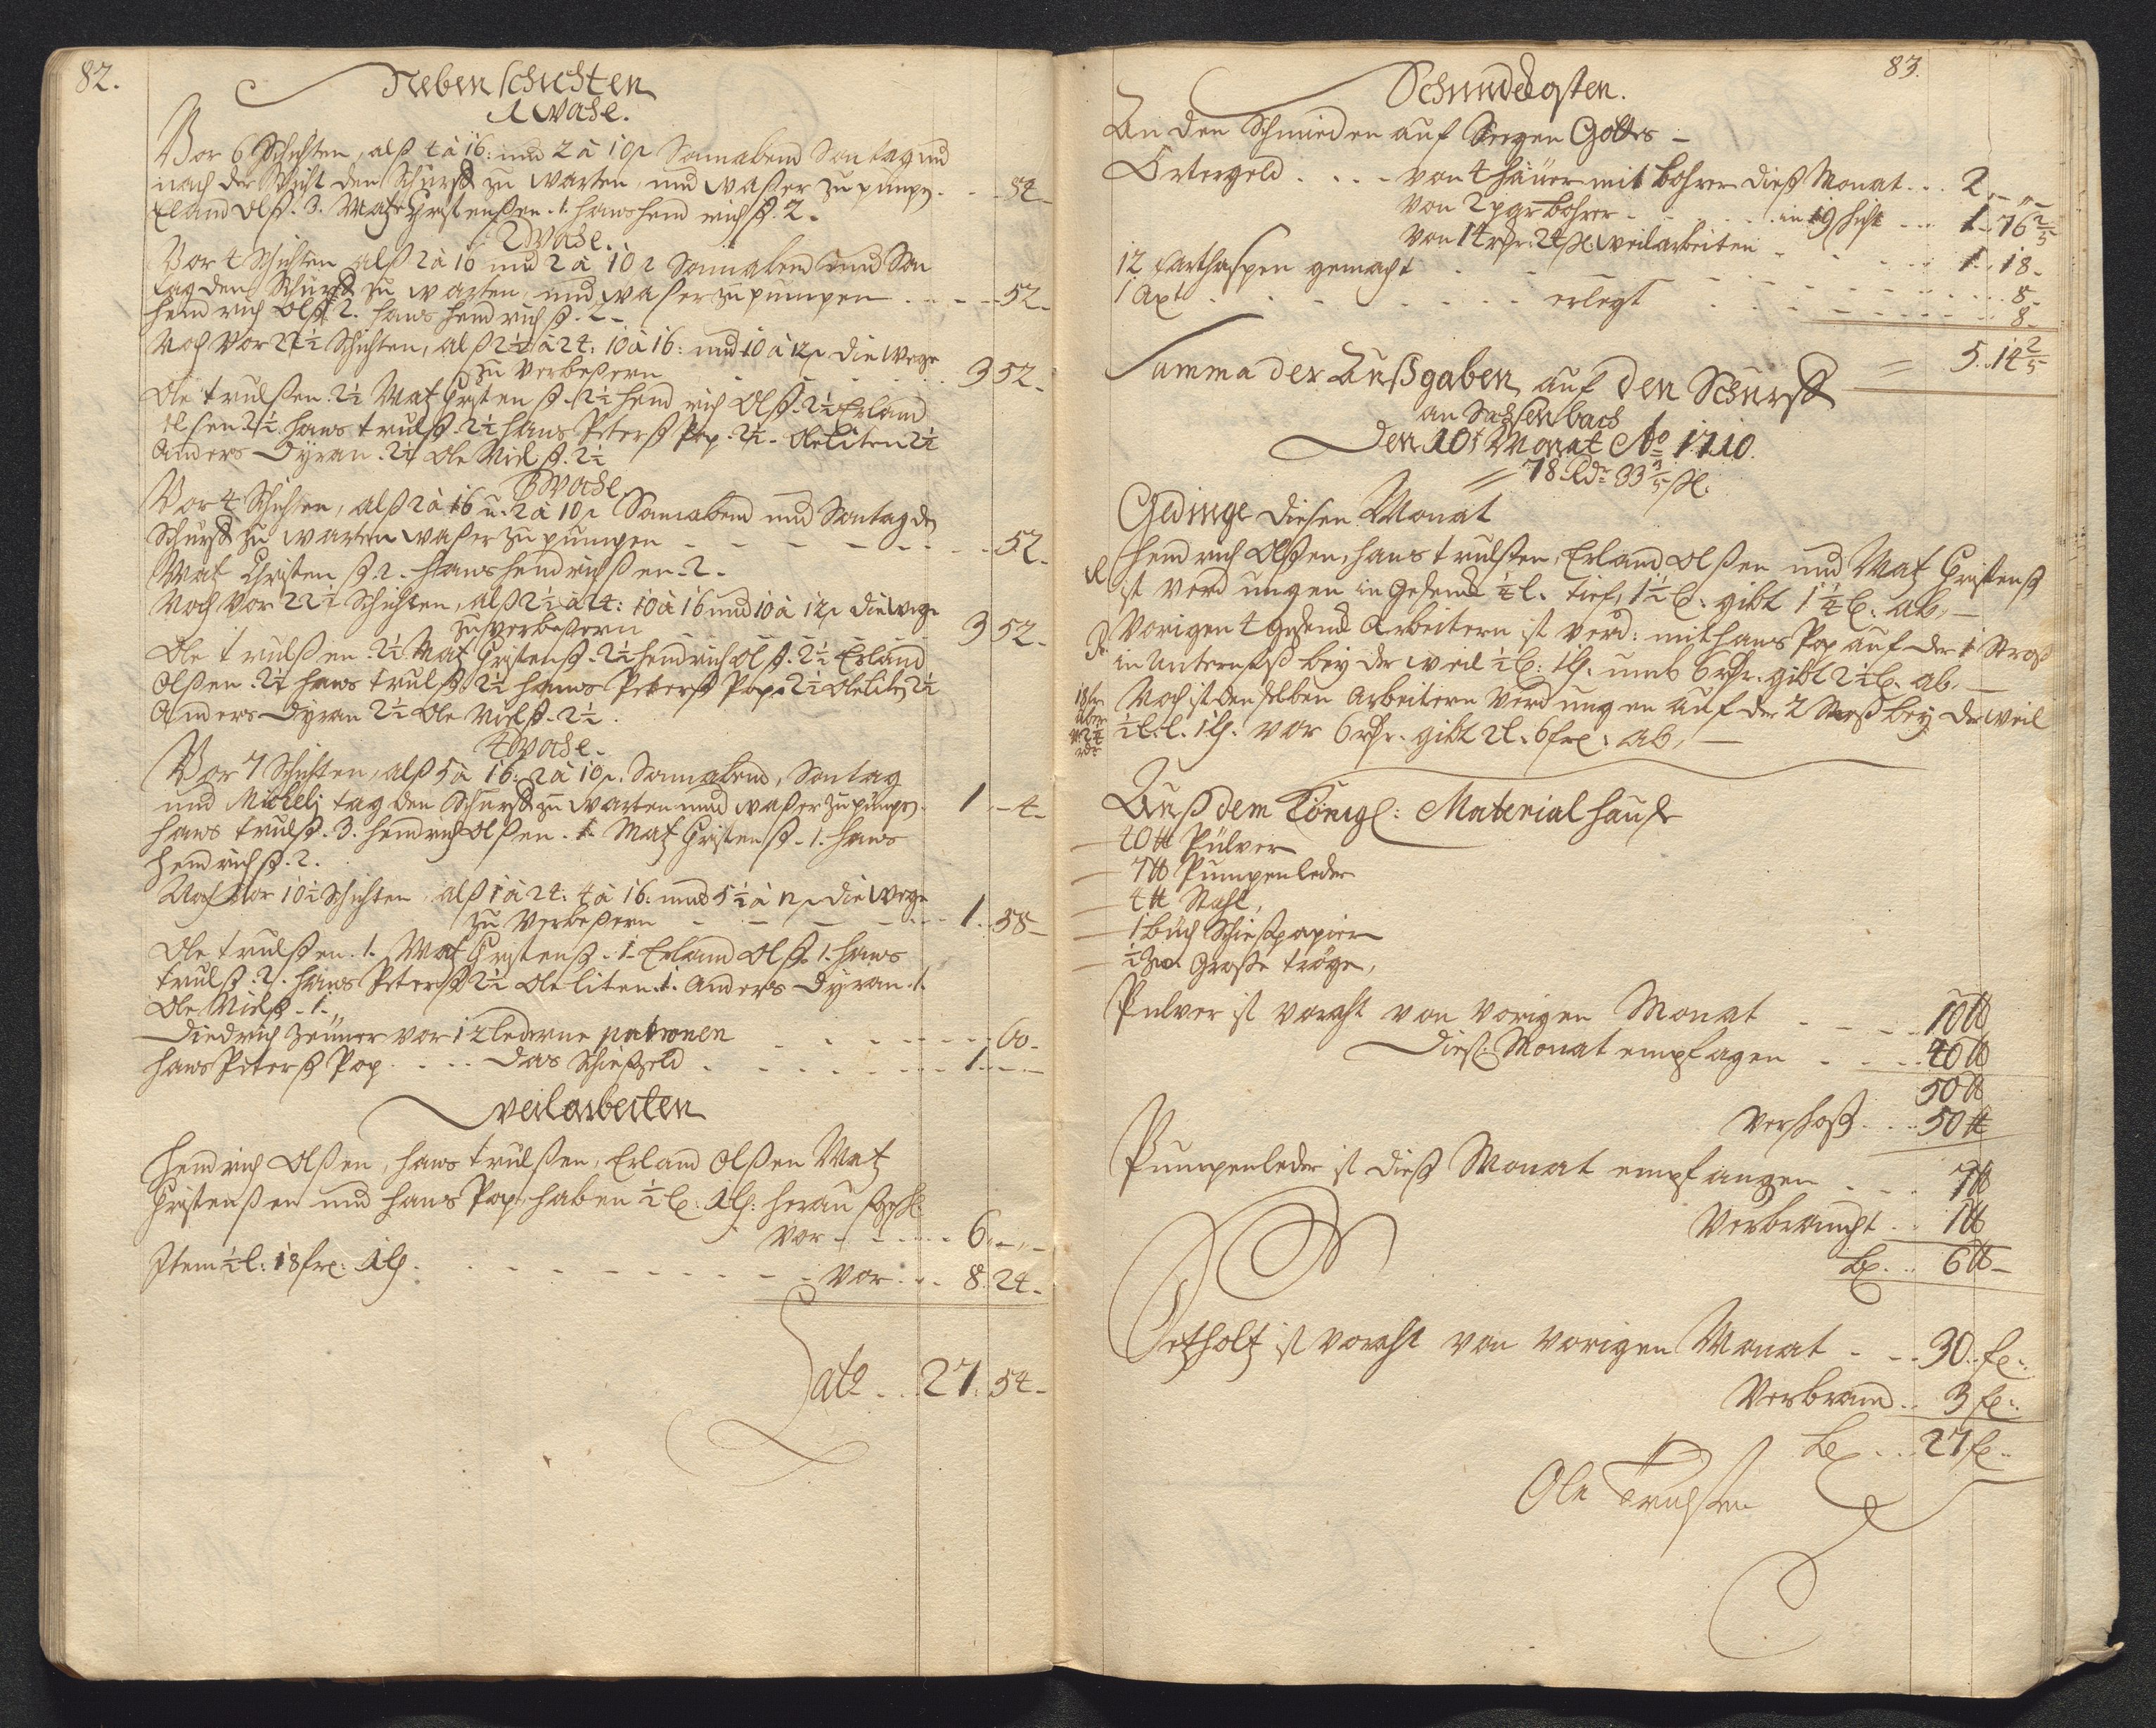 82.
Nebenschichten
1 Woche.
Vor 6 Schichten, alß 4 à 16: und 2 à 10 ß Sonnabend Sontag und
nach der Schicht den Schurff zu warten, und waßer zu pumpen. - - 84 -
Erland Olß. 3. Matz Christenßen. 1. Hans Hendrichß. 2.
2 Woche.
Vor 4 Schichten alß 2 à 16 und 2 à 10 ß Sonnabend und Son
tag den Schurff zu warten und waßer zu pumpen - - - 52 -
Hendrich Olß. 2. Hans Hendrichß. 2 -
Noch Vor 22½ Schichten, alß 2½ à 24: 10 à 16: und 10 à 12 ß die Wege
zu Verbeßern - - - 3 52 -
Ole Trulßen. 2½ Matz Christenß. 2½ Hendrich Olß. 2½ Erland
Olsen. 2½ Hans Trulß. 2½ Hans Peterß Pop. 2½ - Ole Liten 2½
Anders Dyran. 2½ Ole Nielß. 2½
3 Woche.
Vor 4 Schichten, alß 2 à 16 u. 2 à 10 ß Sonnabend und Sontag den
Schurff zu warten waßer zu pumpen - - - - - - 52 -
Matz Christenß. 2. Hans Hendrichßen. 2 -
Noch Vor 22½ Schichten, alß 2½ à 24: 10 à 16 und 10 à 12 ß die Wege
zu verbeßern - - 3 52 -
Ole Trulßen. 2½. Matz Christenß. 2½ Hendrich Olß. 2½ Erland
Olßen. 2½ Hans Trulß. 2½ Hans Peterß Pop. 2½ Ole Liten 2½
Anders Dyran 2½ Ole Nielß. 2½.
4 Woche.
Vor 7 Schichten, alß 5 à 16: 2 à 10 ß. Sonnabend, Sontag
und Michelj tag den Schurff zu warten und waßer zu pumpen. 1. - 4 -
Hans Trulß. 3. Hendrich Olßen. 1. Matz Christenß. 1. Hans
Hendrichß. 2.
Noch Vor 10½ Schichten, alß 1 à 24: 4 à 16: und 5½ à 12 ß die Wege
zu Verbeßern - - - - 1. 58 -
Ole Trulßen. 1. Matz Christenß. 1. Erland Olß. 1. Hans
Trulß. 2. Hans Peterß 2½ Ole Liten. 1. Anders Dyran. 1.
Ole Nielß. 1.
Diedrich Zeuner vor 12 lederne patronen - - - - - 60 -
Hans Peterß Pop - - - das Schießgeld - - - - - 1 - -
Weilarbeiten
Hendrich Olßen, Hans Trulßen, Erland Olßen Matz
Christenßen und Hans Pop haben
Vor - - - 6. - -
Item ½ l: 18 - - - - - Vor - - 8. 24 -
Lat? - - 27. 54 -
83.
Schmiedekosten.
An den Schmieden auf Seegen Gottes -
Örtergeld - - - von 4 häuer mit bohrer dieß Monat - - 2. - -
von 2 par bohrer - - - in 19 schicht - - 1 - 76 2/5
Von 14 rdr: 24 ß. weilarbeiten - - - 1. 18 -
12 Karthaspen gemacht - - - - - - 8 -
1 Axt - - - - - erlegt - - - - - 8 -
5. 14 2/5
Summa der Außgaben auf den Schurff
an Sachsenbach
Den 10t Monat Ao 1710.
= 78 Rdr 33 3/5 ß.
Gedinge diesen Monat
Hendrich Olßen, Hans Trulßen, Erland Olßen und Matz Christenß
ist verdungen in Gesenck ½ l. tief, 1½ b. gibt 1¼ b. ab. -
Vorigen 4 Gesenck Arbeitern ist verd: mit Hans Pop auf der 1 Stroß
bey der weil umb 6 rdr. gibt 2½ b. ab. -
Noch ist denselben Arbeitern verdungen auf der 2 Stroß bey der weil
vor 6 rdr. gibt 2 l. 6 ab, -
Auß dem Königl: Material hause
- 40 ℔ Pulver
- 7 ℔ Pumpenleder
- 4 ℔ Stahl,
- 1 buch Schießpapier
- Große tröge,
Pulver ist vorraht von vorigen Monat - - - - 10 ℔
Dieß Monat empfagen - - - 40 ℔
50 ℔
Verschoß - - 50 ℔
Pumpenleder ist dieß Monat empfangen - - - 7 ℔
Verbraucht - - 1 ℔
- - 6 ℔ -
Setzholtz ist vorraht von vorigen Monat - - - 30
Verbrand - - 3
- - 27
Ole Trulßen